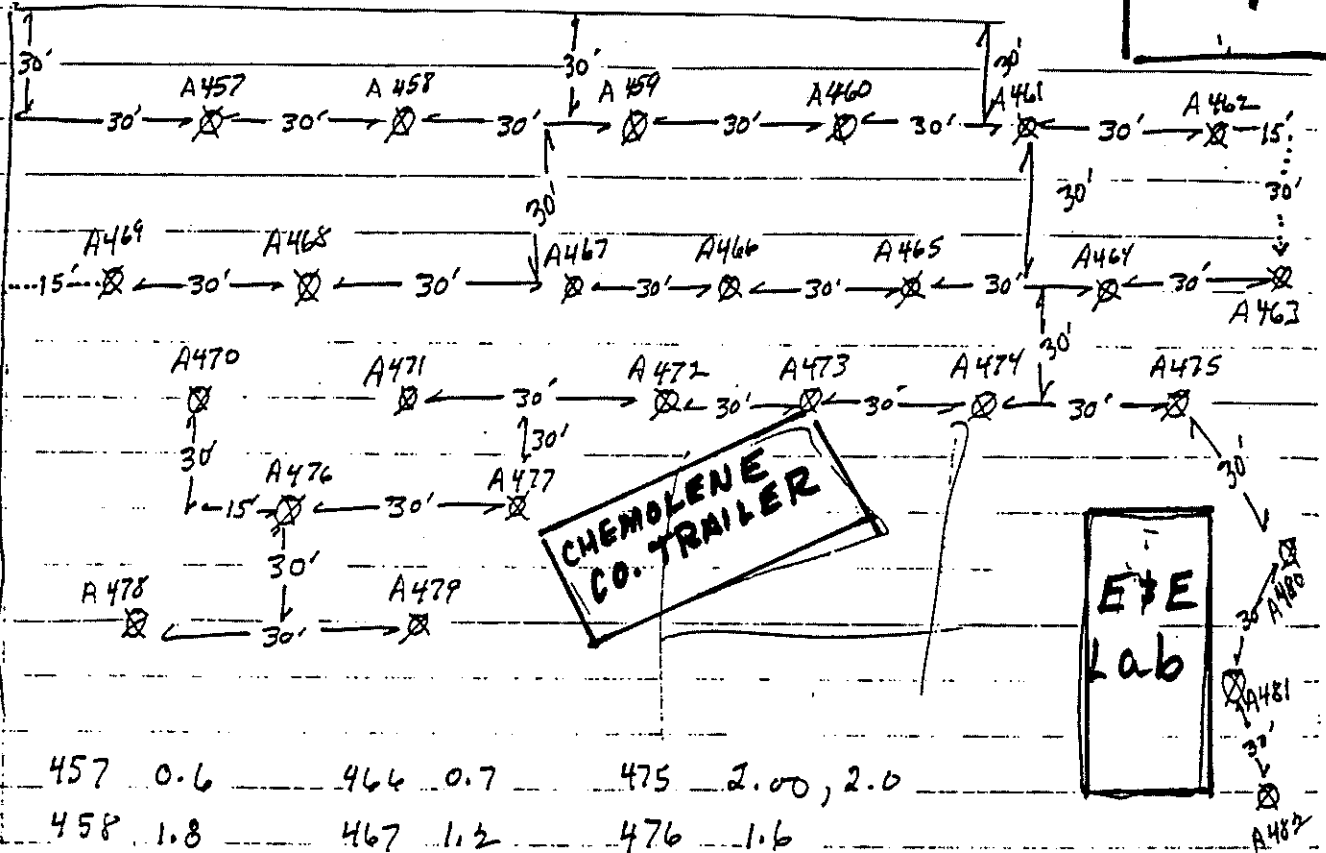 30' 30' 30'
A457 A458 A459 A460 A461 A462
30' 30' 30' 30' 30' 30' 15'
30' 30' 30'
A469 A468 A467 A466 A465 A464
15' 30' 30' 30' 30' 30' 30'
A463
30'
A470 A471 A472 A473 A474 A475
30' 30' 30' 30'
30' 30' 30'
A476 A477
15' 30'
CHEMOLENE
CO. TRAILER
30'
A478 A479
30'
E & E
Lab
A480
30'
A481
30'
A482
457 0.6 466 0.7 475 2.00, 2.0
458 1.8 467 1.2 476 1.6